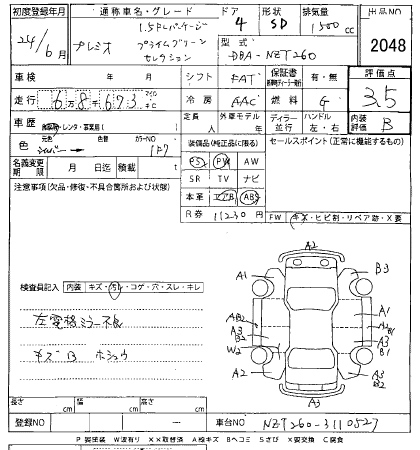 初度登録年月 通称車名・グレード ドア 形状 排気量 出品NO
24/6月 プレミオ 1.5FLパッケージ 4 SD 1500 cc
プライムグリーン
セレクション
型式 DBA-NZT260 2048
車検 年 月 シフト FAT 保証書 有・無 評価点
走行 6万8千673 冷房 AAC 燃料 G 3.5
車歴 レンタ・事業用 定員 人 外車モデル 年 ディラー 並行 ハンドル 左・右 内装 B
色 元色 シルバー → 色替 カラーNO 1F7
装備品(純正品に限る) セールスポイント(正常に機能するもの)
名義変更期限 月 日迄 積載 t
PS PW AW
SR TV ナビ
本革 エアB ABS
注意事項(欠品・修復・不具合箇所および状態)
R券 11230円
FW キズ・ヒビ割・リペア跡・X要
検査員記入 内装 キズ・汚レ・コゲ・穴・スレ・キレ
左電格ミラー不良
キズB ホシュウ
A2
A1 B3
A1
AB2
A3
B2
W2
A3
B1
A2 A3
B2
A3
長さ cm 幅 cm 高さ cm
登録NO ― 車台NO NZT260-3110527
P 要塗装 W波有り XX取替済 A線キズ Bヘコミ Sさび X要交換 C腐食